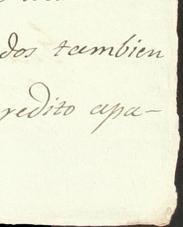 dos tambien
redito apa-